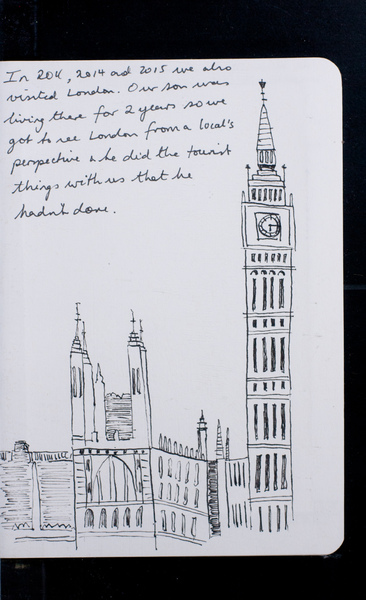 In 2011, 2014 and 2015 we also
visited London. Our son was
living there for 2 years so we
got to see London from a local's
perspective & he did the tourist
things with us that he
hadn't done.